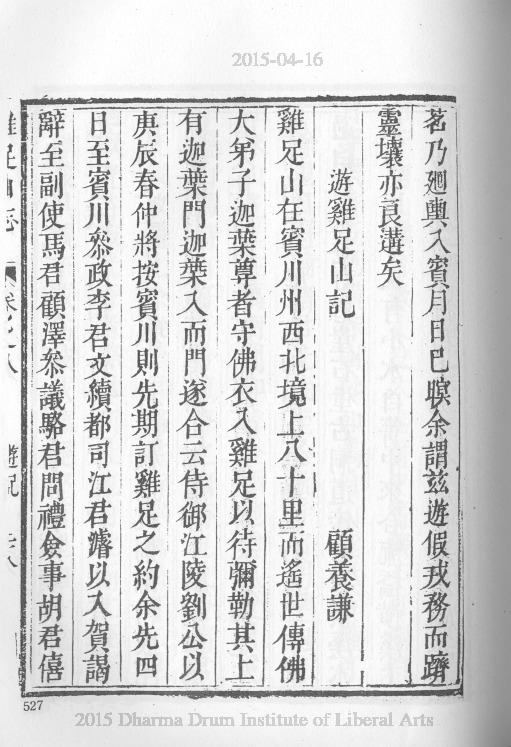 2015-04-16
茗乃廻輿入賓月日巳暝余謂茲遊假戎務而躋
靈壤亦良遘矣
遊雞足山記 顧養謙
雞足山在賓川州西北境上八十里而遙世傳佛
大弟子迦葉尊者守佛衣入雞足以待彌勒其上
有迦葉門迦葉入而門遂合云侍御江陵劉公以
庚辰春仲將按賓川則先期訂雞足之約余先四
日至賓川叅政李君文續都司江君濬以入賀謁
辭至副使馬君顧澤叅議駱君問禮僉事胡君僖
雞足山志 卷之八 遊記
527
2015 Dharma Drum Institute of Liberal Arts